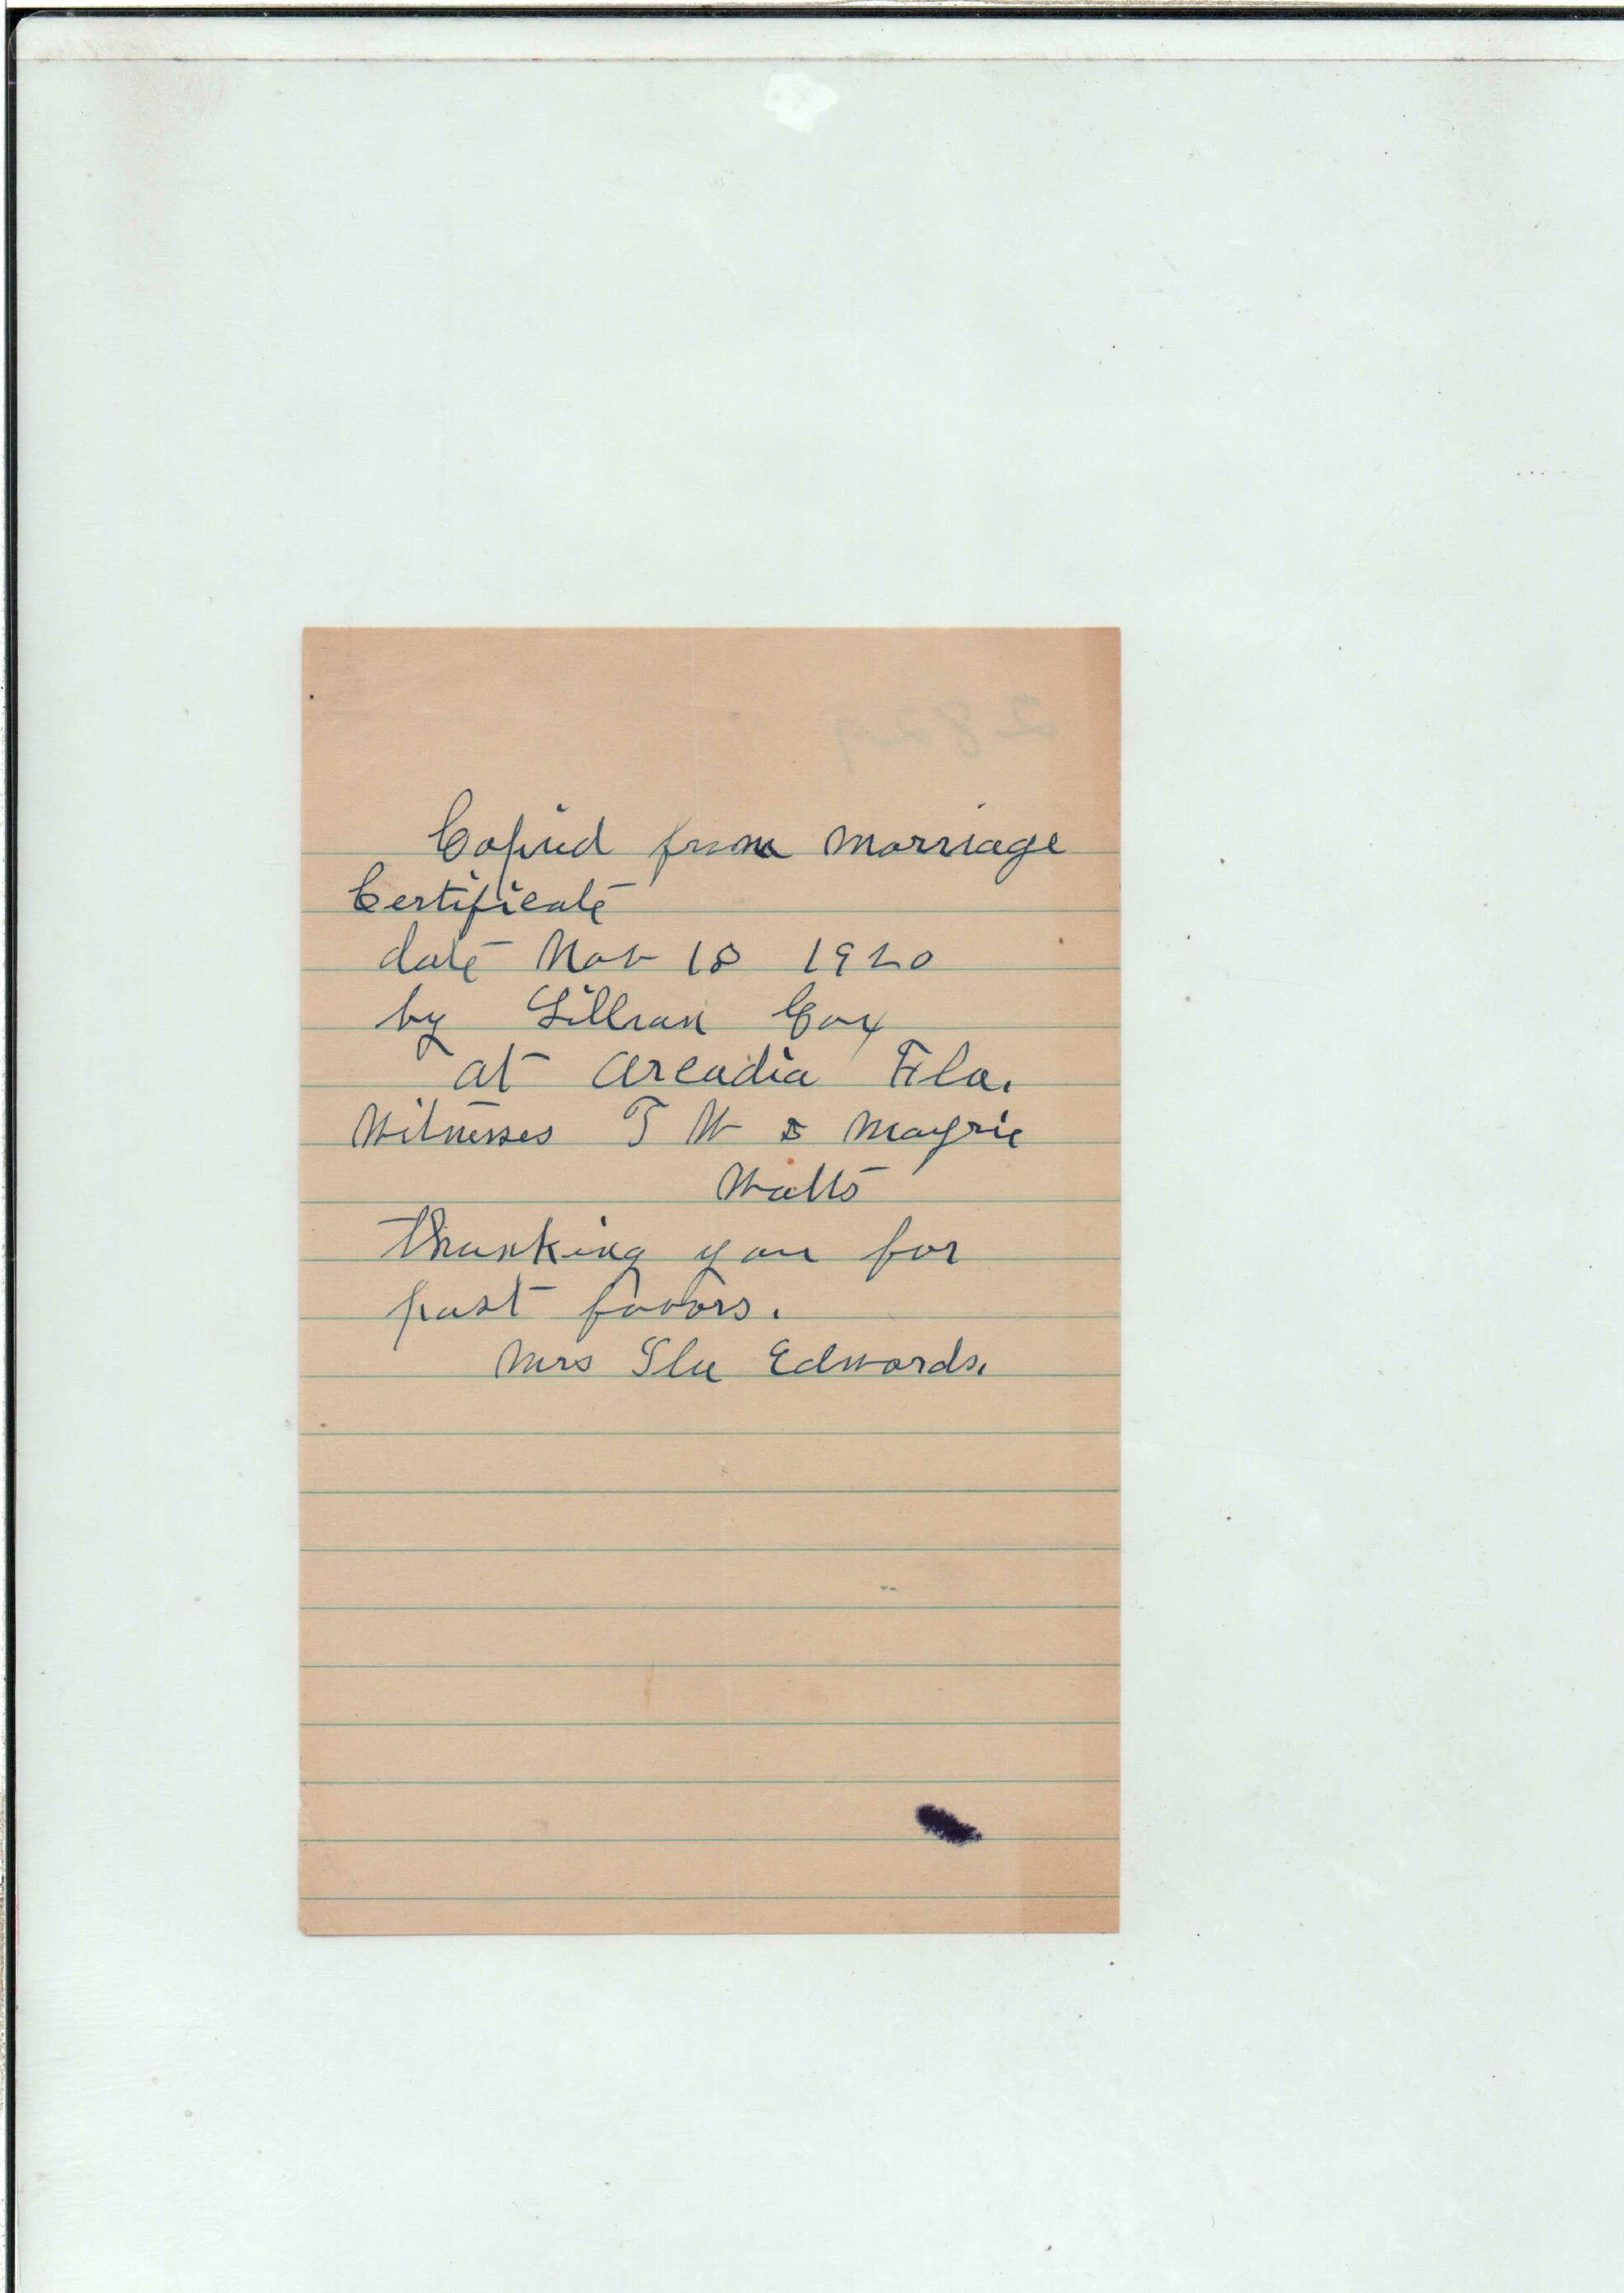 Copied from Marriage
Certificate
date Nov 18 1920
by Lillian Cox
at Arcadia Fla.
Witnesses T W &
Watts
thanking you for
past favors.
Mrs Edwards.